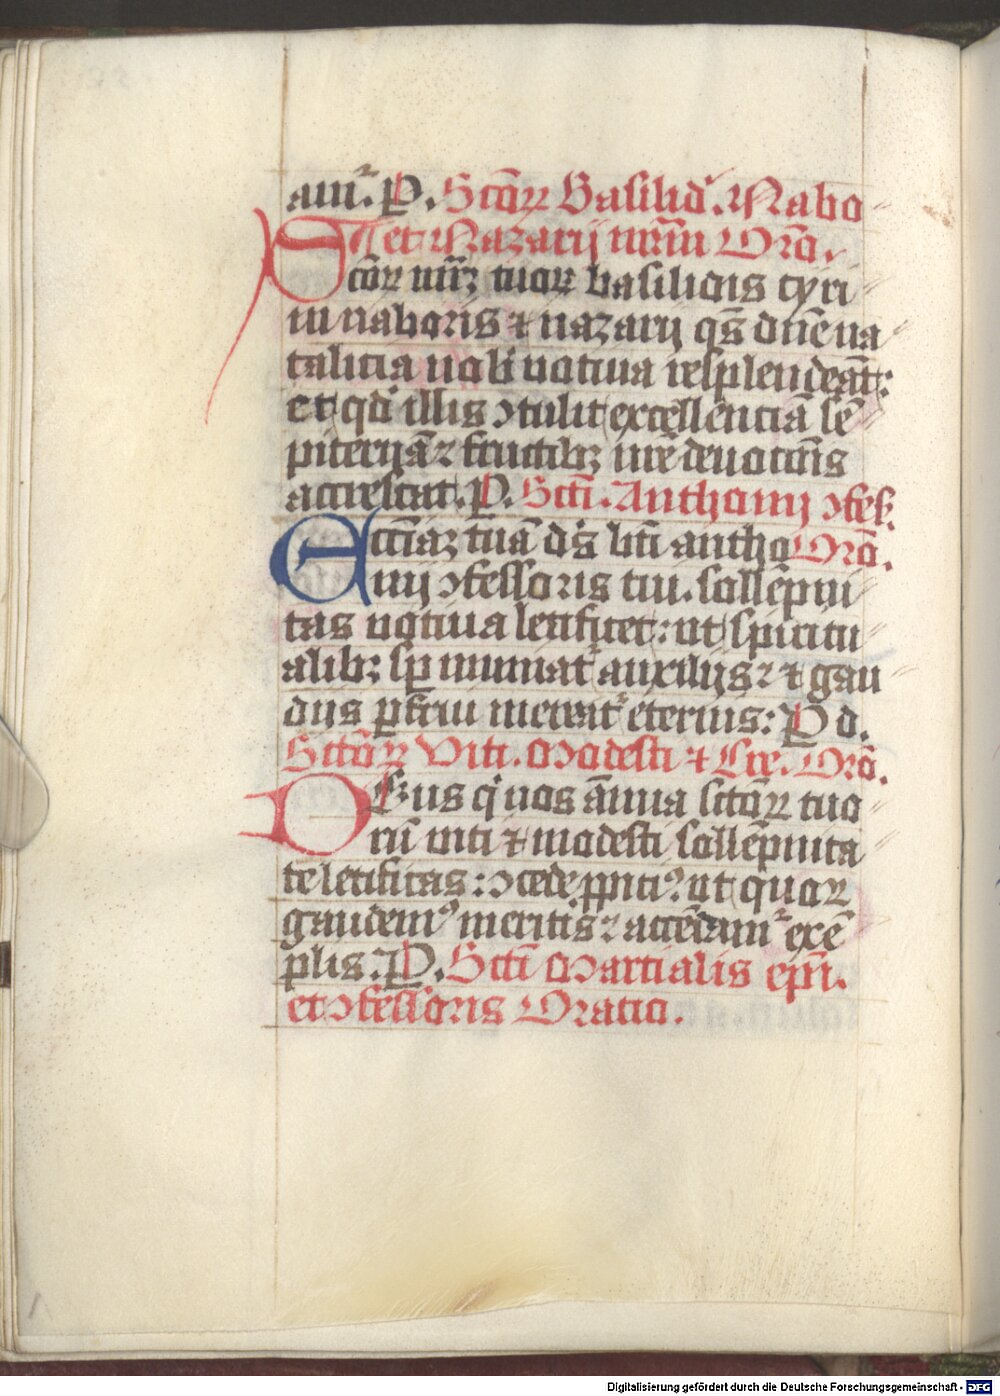 amr. P. Sctōꝝ Basilid'. Nabo
et Nazarij mr̄m Orō.
Sctōꝝ mr̄ꝫ tuoꝝ basilidis cyri
ni naboris ⁊ nazarij qs̄ dnē na
talicia nob' votiua resplendeāt:
et qd' illis ↄtulit excellenciā sē
piternā: fructibꝫ nr̄e deuotōis
accrescat. P. Scti. Anthonij ↄfes.
Ecc̄iaꝫ tuā ds̄ bt̄i antho Orō.
nij ↄfessoris tui. sollēpni
tas votiua letificet: ut spiritu
alibꝫ sp muniat' auxilijs: ⁊ gau
dijs pfrui mereat' eternis: P d.
Sctōꝝ Viti. Modesti ⁊ Cre. Orō.
Deus q' nos ānua sctōꝝ tuo
rū viti ⁊ modesti sollēpnita
te letificas: ↄcede ppiti' ut quoꝝ
gaudem' meritis: accēdamr exē
plis. P. Scti Martialis epī.
et ↄfessoris Oratio.
Digitalisierung gefördert durch die Deutsche Forschungsgemeinschaft - DFG